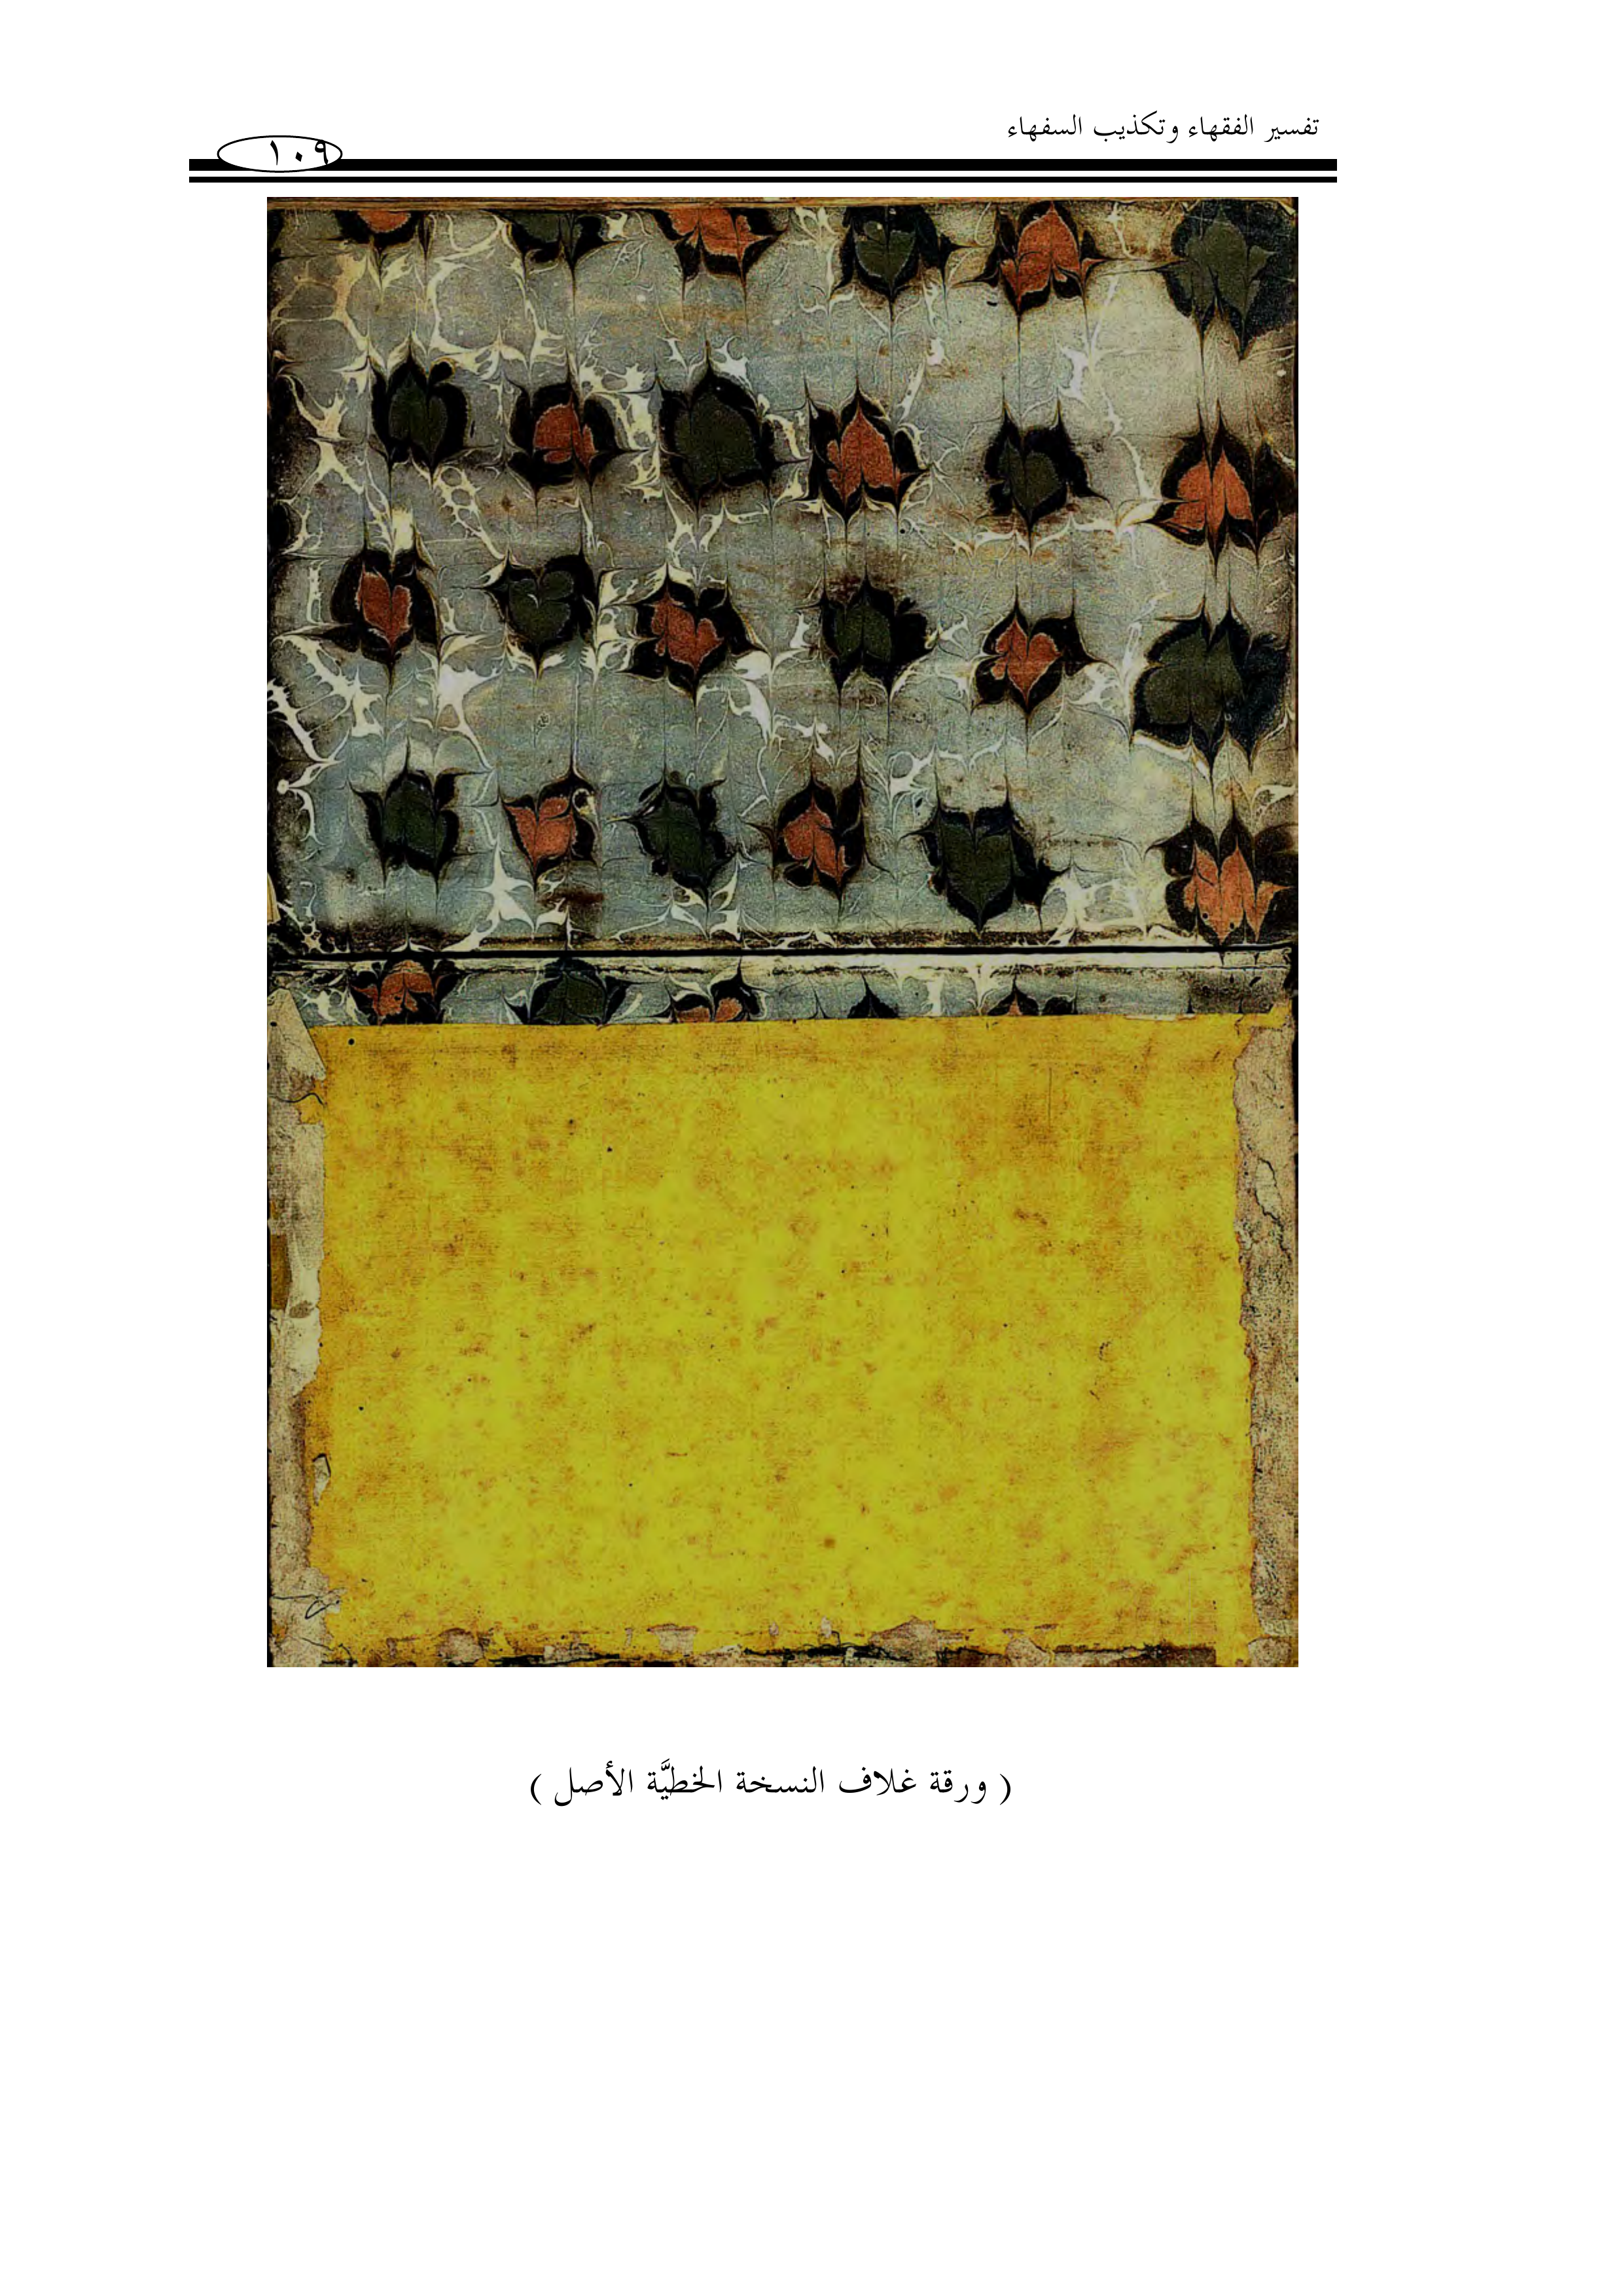 تفسير الفقهاء وتكذيب السفهاء
١٠٩
( ورقة غلاف النسخة الخطيَّة الأصل )